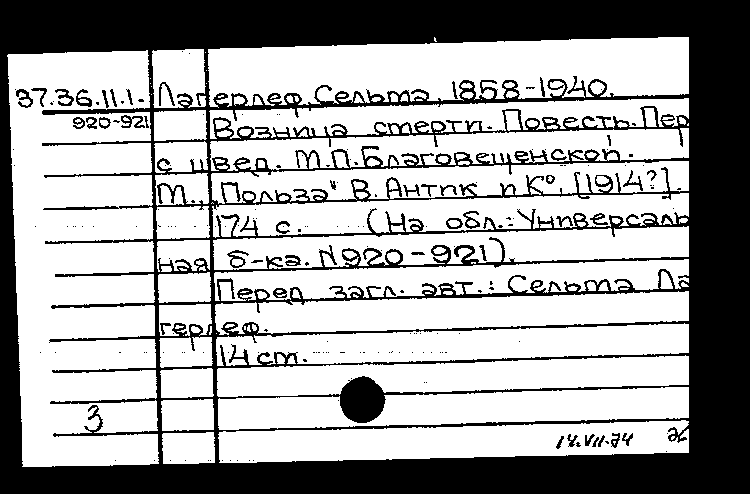 37.36.11.1. Лагерлеф, Сельма, 1858-1940.
920-921 Возница смерти. Повесть. Пер
с швед. М.П.Благовещенской.
М., „Польза" В. Антик и К°, [1914?].
174 с. (На обл.: Универсаль
ная б-ка. N920-921).
Перед загл. авт.: Сельма Ла
герлеф.
14 см.
3
14.VII.74